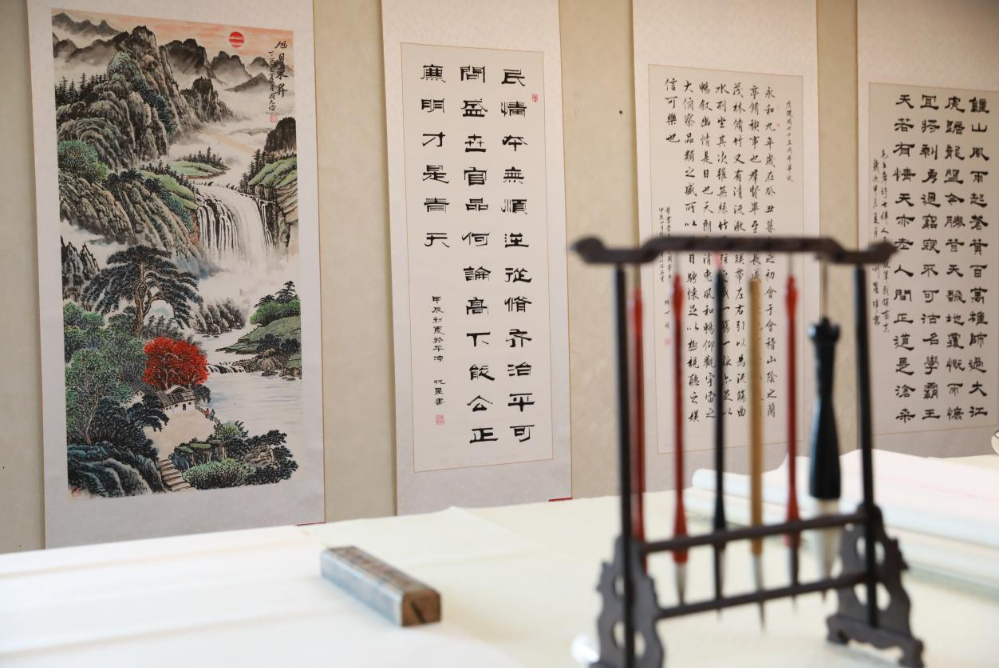 旭日東昇
民情本無順逆從脩齊治平可
問盛世官品何論高下能公正
廉明才是青天
永和九年歲在癸丑暮春之初會于會稽山陰之蘭
亭脩禊事也群賢畢至
茂林脩竹又有清流激湍映帶左右引以為流觴曲
水列坐其次雖無絲竹管弦之盛一觴一詠亦足以
暢敘幽情是日也天朗氣清惠風和暢仰觀宇宙之
大俯察品類之盛所以遊目騁懷足以極視聽之娛
信可樂也
鍾山風雨起蒼黃百萬雄師過大江
虎踞龍盤今勝昔天翻地覆慨而慷
宜將剩勇追窮寇不可沽名學霸王
天若有情天亦老人間正道是滄桑